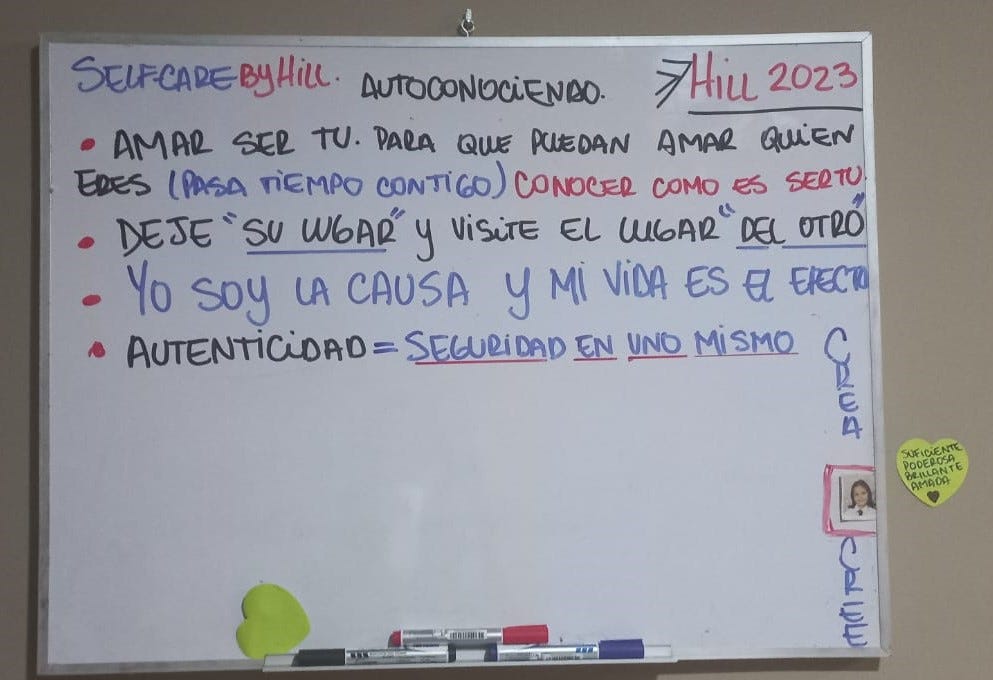 SELFCAREBYHILL. AUTOCONOCIENDO. HILL 2023
• AMAR SER TU. PARA QUE PUEDAN AMAR QUIEN
ERES (PASA TIEMPO CONTIGO) CONOCER COMO ES SER TU.
• DEJE "SU LUGAR" Y VISITE EL LUGAR "DEL OTRO"
• YO SOY LA CAUSA Y MI VIDA ES EL EFECTO
• AUTENTICIDAD = SEGURIDAD EN UNO MISMO
CREA
SUFICIENTE
PODEROSA
BRILLANTE
AMADA